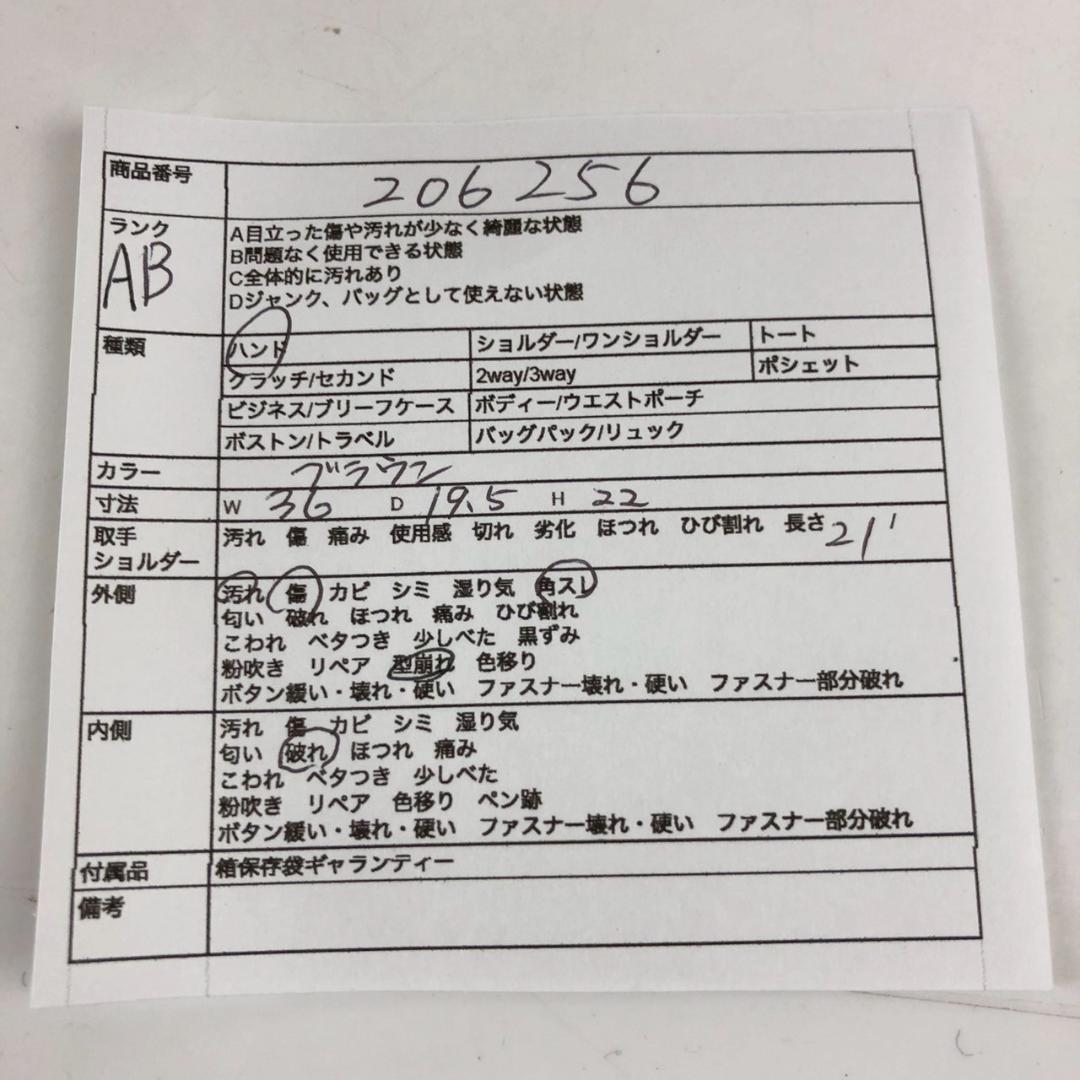 商品番号 206256
ランク AB
A目立った傷や汚れが少なく綺麗な状態
B問題なく使用できる状態
C全体的に汚れあり
Dジャンク、バッグとして使えない状態
種類 ハンド ショルダー/ワンショルダー トート
クラッチ/セカンド 2way/3way ポシェット
ビジネス/ブリーフケース ボディー/ウエストポーチ
ボストン/トラベル バッグパック/リュック
カラー ブラウン
寸法 W 36 D 19.5 H 22
取手 汚れ 傷 痛み 使用感 切れ 劣化 ほつれ ひび割れ 長さ 21
ショルダー
外側 汚れ 傷 カビ シミ 湿り気 角スレ
匂い 破れ ほつれ 痛み ひび割れ
こわれ ベタつき 少しべた 黒ずみ
粉吹き リペア 型崩れ 色移り
ボタン緩い・壊れ・硬い ファスナー壊れ・硬い ファスナー部分破れ
内側 汚れ 傷 カビ シミ 湿り気
匂い 破れ ほつれ 痛み
こわれ ベタつき 少しべた
粉吹き リペア 色移り ペン跡
ボタン緩い・壊れ・硬い ファスナー壊れ・硬い ファスナー部分破れ
付属品 箱保存袋ギャランティー
備考